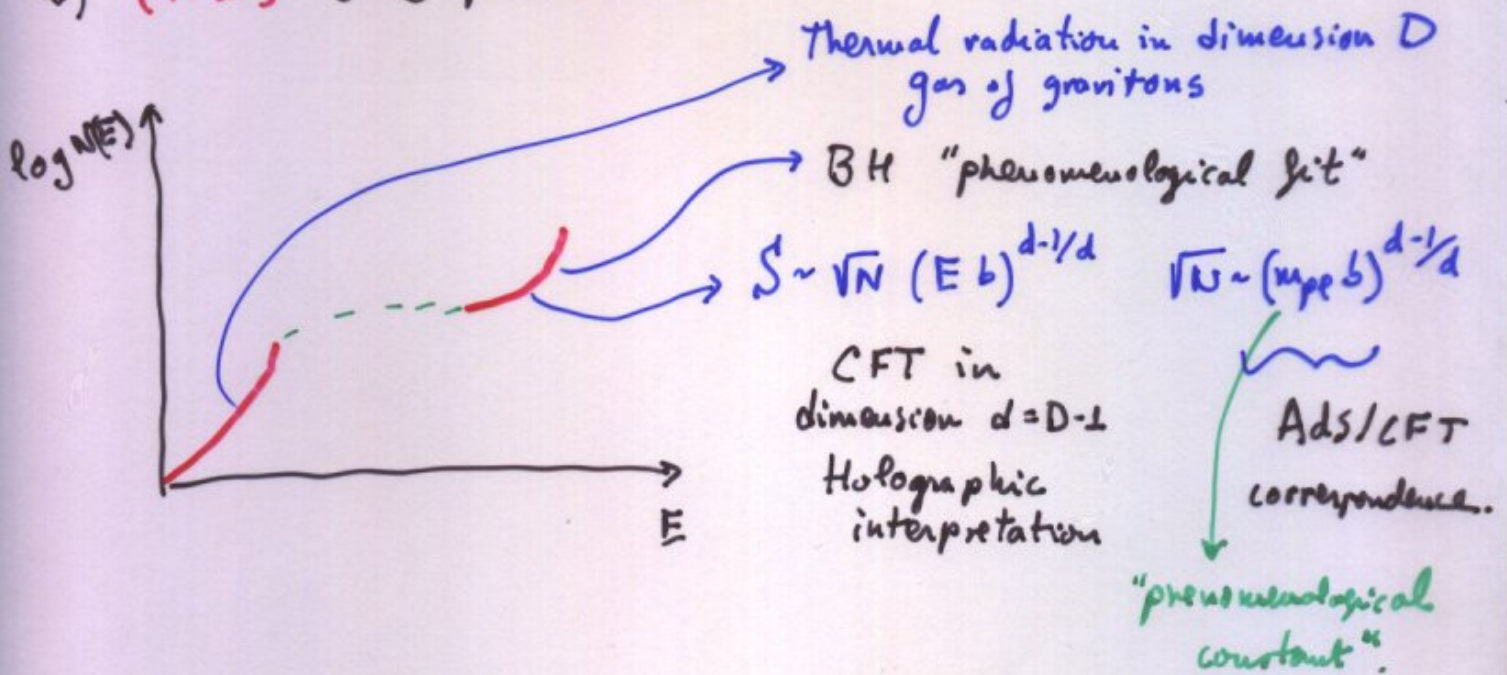 Thermal radiation in dimension D
gas of gravitons
log N(E)
BH "phenomenological fit"
S ~ √N (E b)^{d-1/d} √N ~ (m_{pl} b)^{d-1/d}
CFT in
dimension d = D-1
Holographic
interpretation
AdS/CFT
correspondence.
E
"phenomenological
constant".